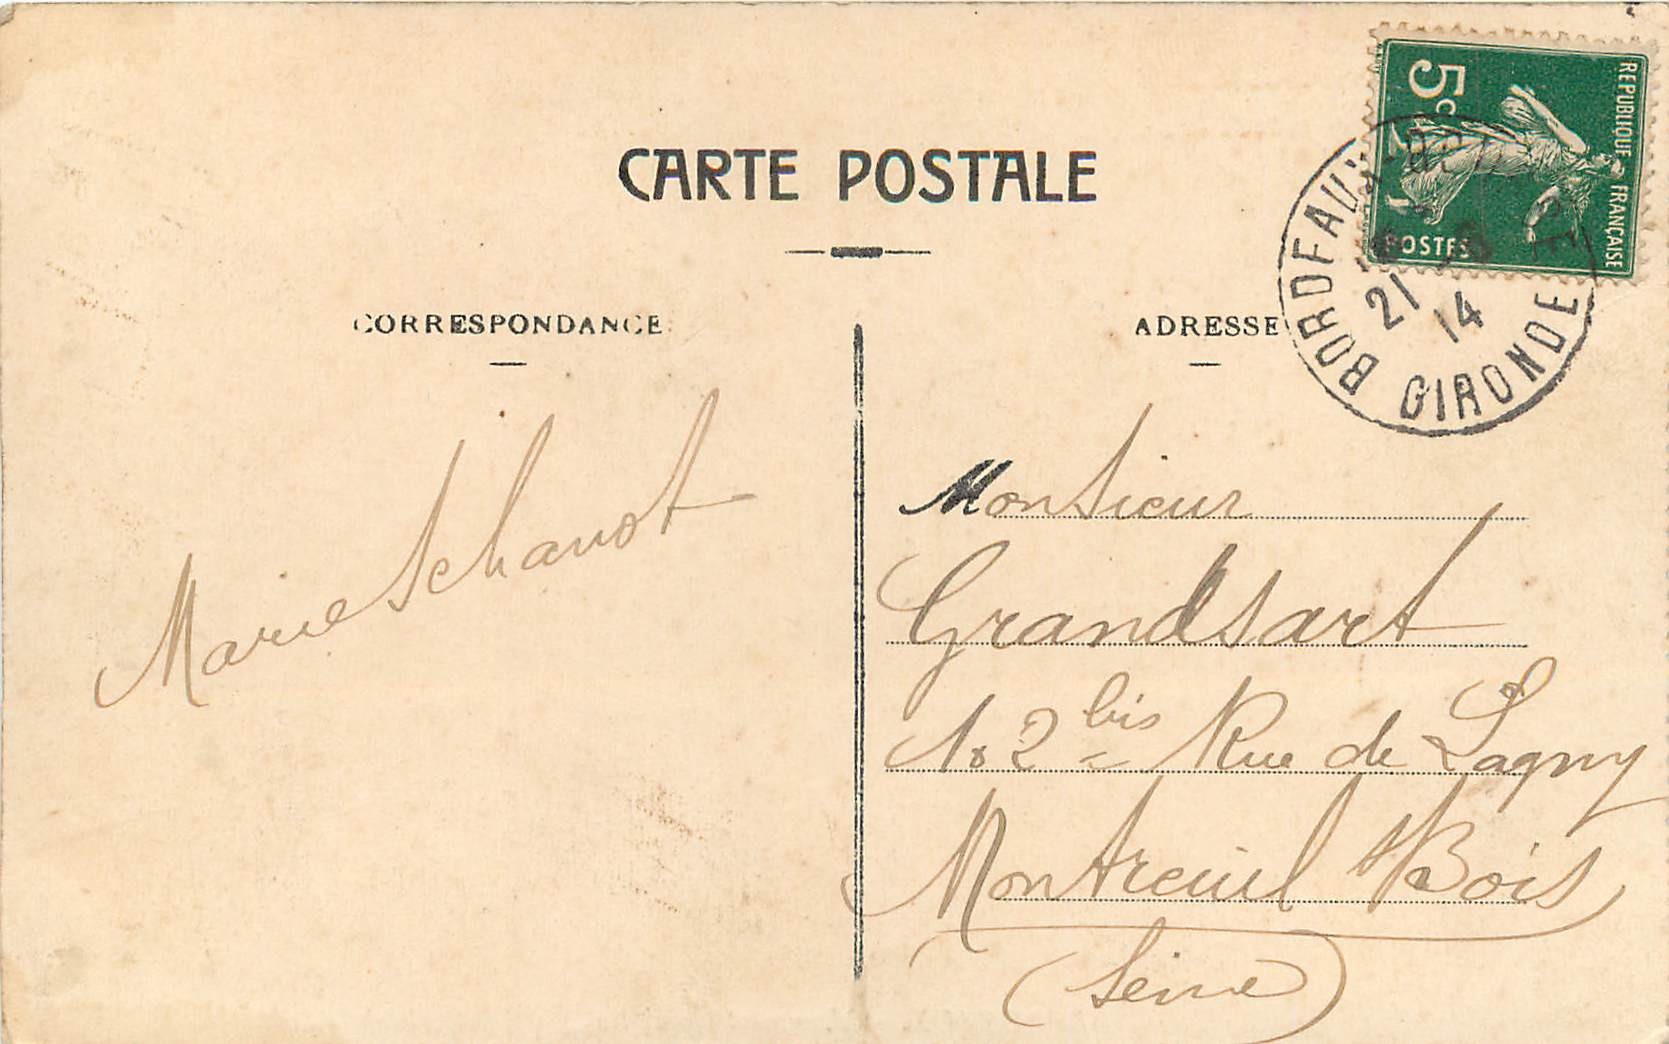 CARTE POSTALE
CORRESPONDANCE
ADRESSE
5c
REPUBLIQUE FRANÇAISE
POSTES
BORDEAUX
21 14
GIRONDE
Marie Schanot
Monsieur
Grandsart
102 bis Rue de Lagny
Montreuil s/Bois
(Seine)